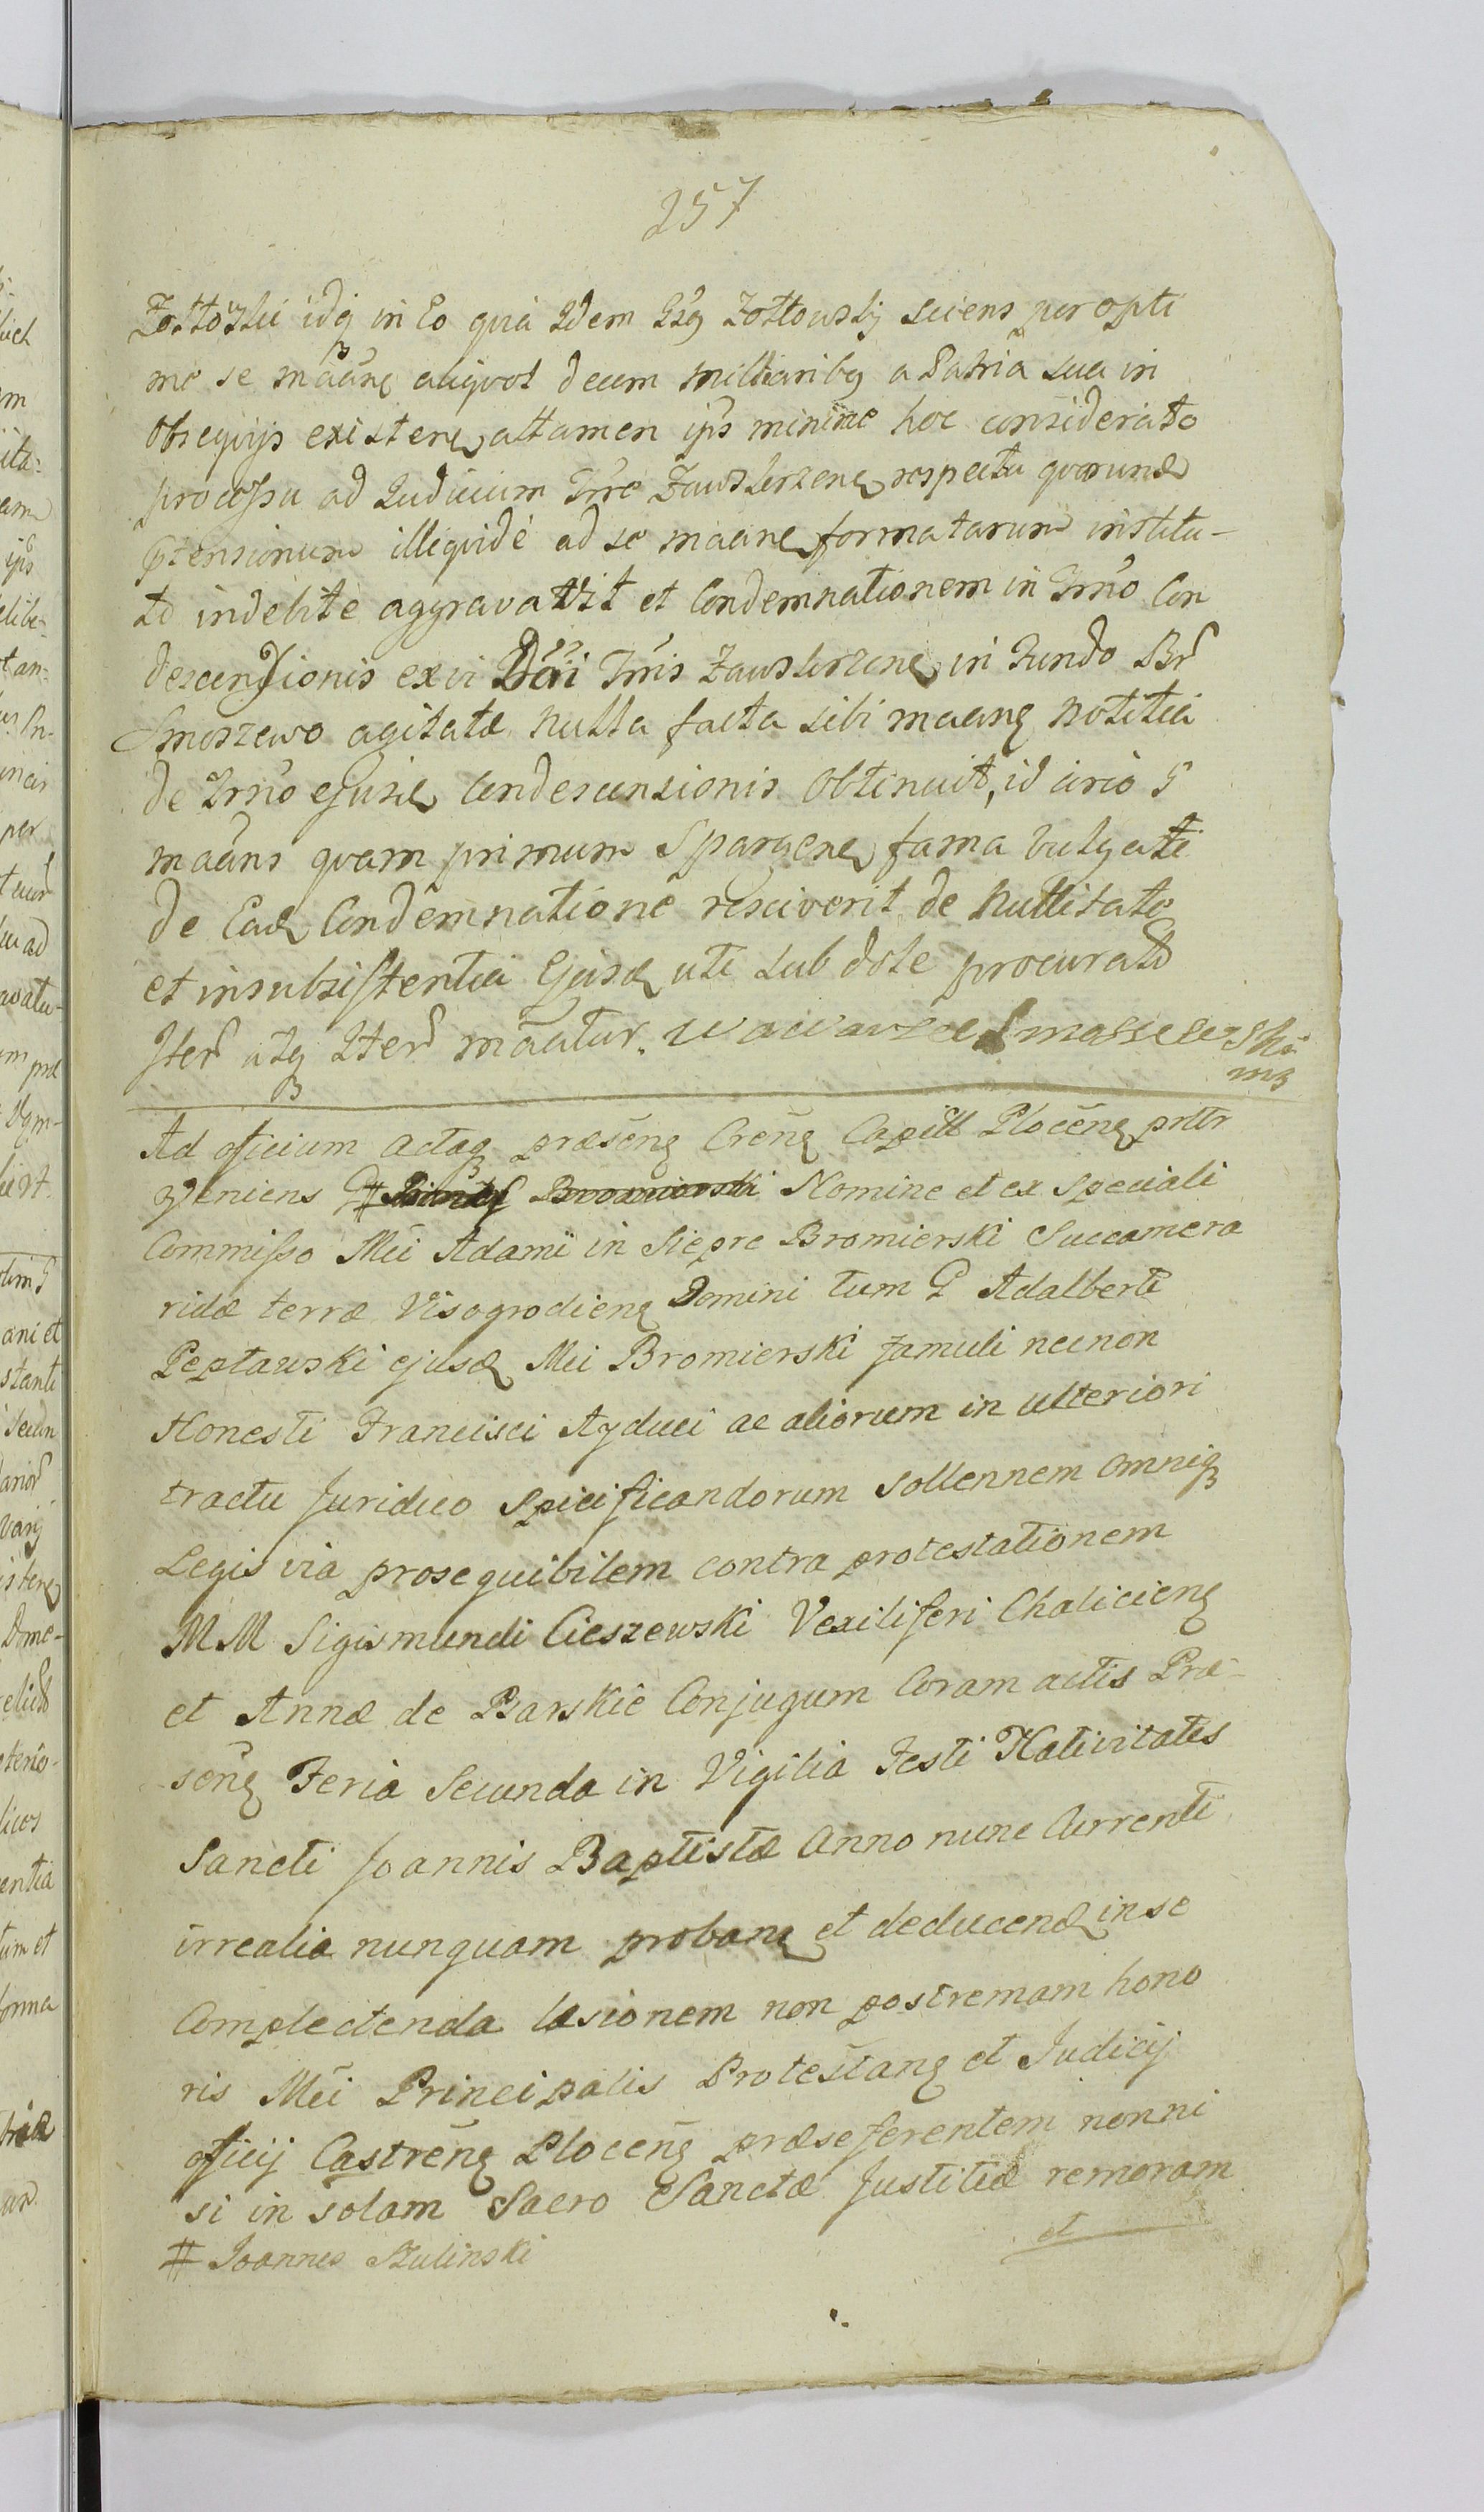 257
idq in Eo quia Idem Zołtowskj sciens per opti
me se mãane aliqvot decem milliaribq a Patria sua in
Obseqvijs existere attamen ips minime hoc considerato
processu ad Iudicium Trre Zawskrzene respectu qvorund
ptensionum illiqvidè ad se maane formatarum institu-
to indebite aggravavit et Condemnationem in Trno Con
descensionis ex vi Trris Zawskrzene in fundo Br
Smoszewo agitatæ nulla facta sibi maang notitia
de Trno ejusd Condescensionis Obtenuit, id circo G
maans qvam primum Spargene fama vulgati
de Ead Condemnatione resciverit de Nullitate
et insubsistentia Ejusd uti sub dole procurata
Iter atq Iter mãatur. Wawrzeniec Smosseeski
mp
Ad officium Actaq præseng Creng Capitt Ploceng prttr
veniens G # Nomine et ex Speciali
Commisso Mci Adami in Siepre Bromierski Succamera
ridæ terræ Visogrodieng Domini tum G Adalberti
Peptawski ejusd Mci Bromierski famuli necnon
Honesti Francisci Ayduci ac aliorum in ulteriori
tractu Juridico Spicificandorum Sollennem omniq
Legis via prosequibilem contra protestationem
MM Sigismundi Cieszewski Vexiliferi Chalicieng
et Annæ de Barskie Conjugum Coram actis Præ-
seng Feria Secunda in Vigilia Festi Nativitatis
Sancti Joannis Baptistæ Anno nunc Currenti
irrealia nunquam probang et deducend in se
Complectenda læsionem non postremam hono
ris Mci Principalis Protestang et Judicij
officij Castreng Ploceng præseferentem nonni
si in solam Sacro Sanctæ Justitiæ remoram
et
# Joannes Szulinski